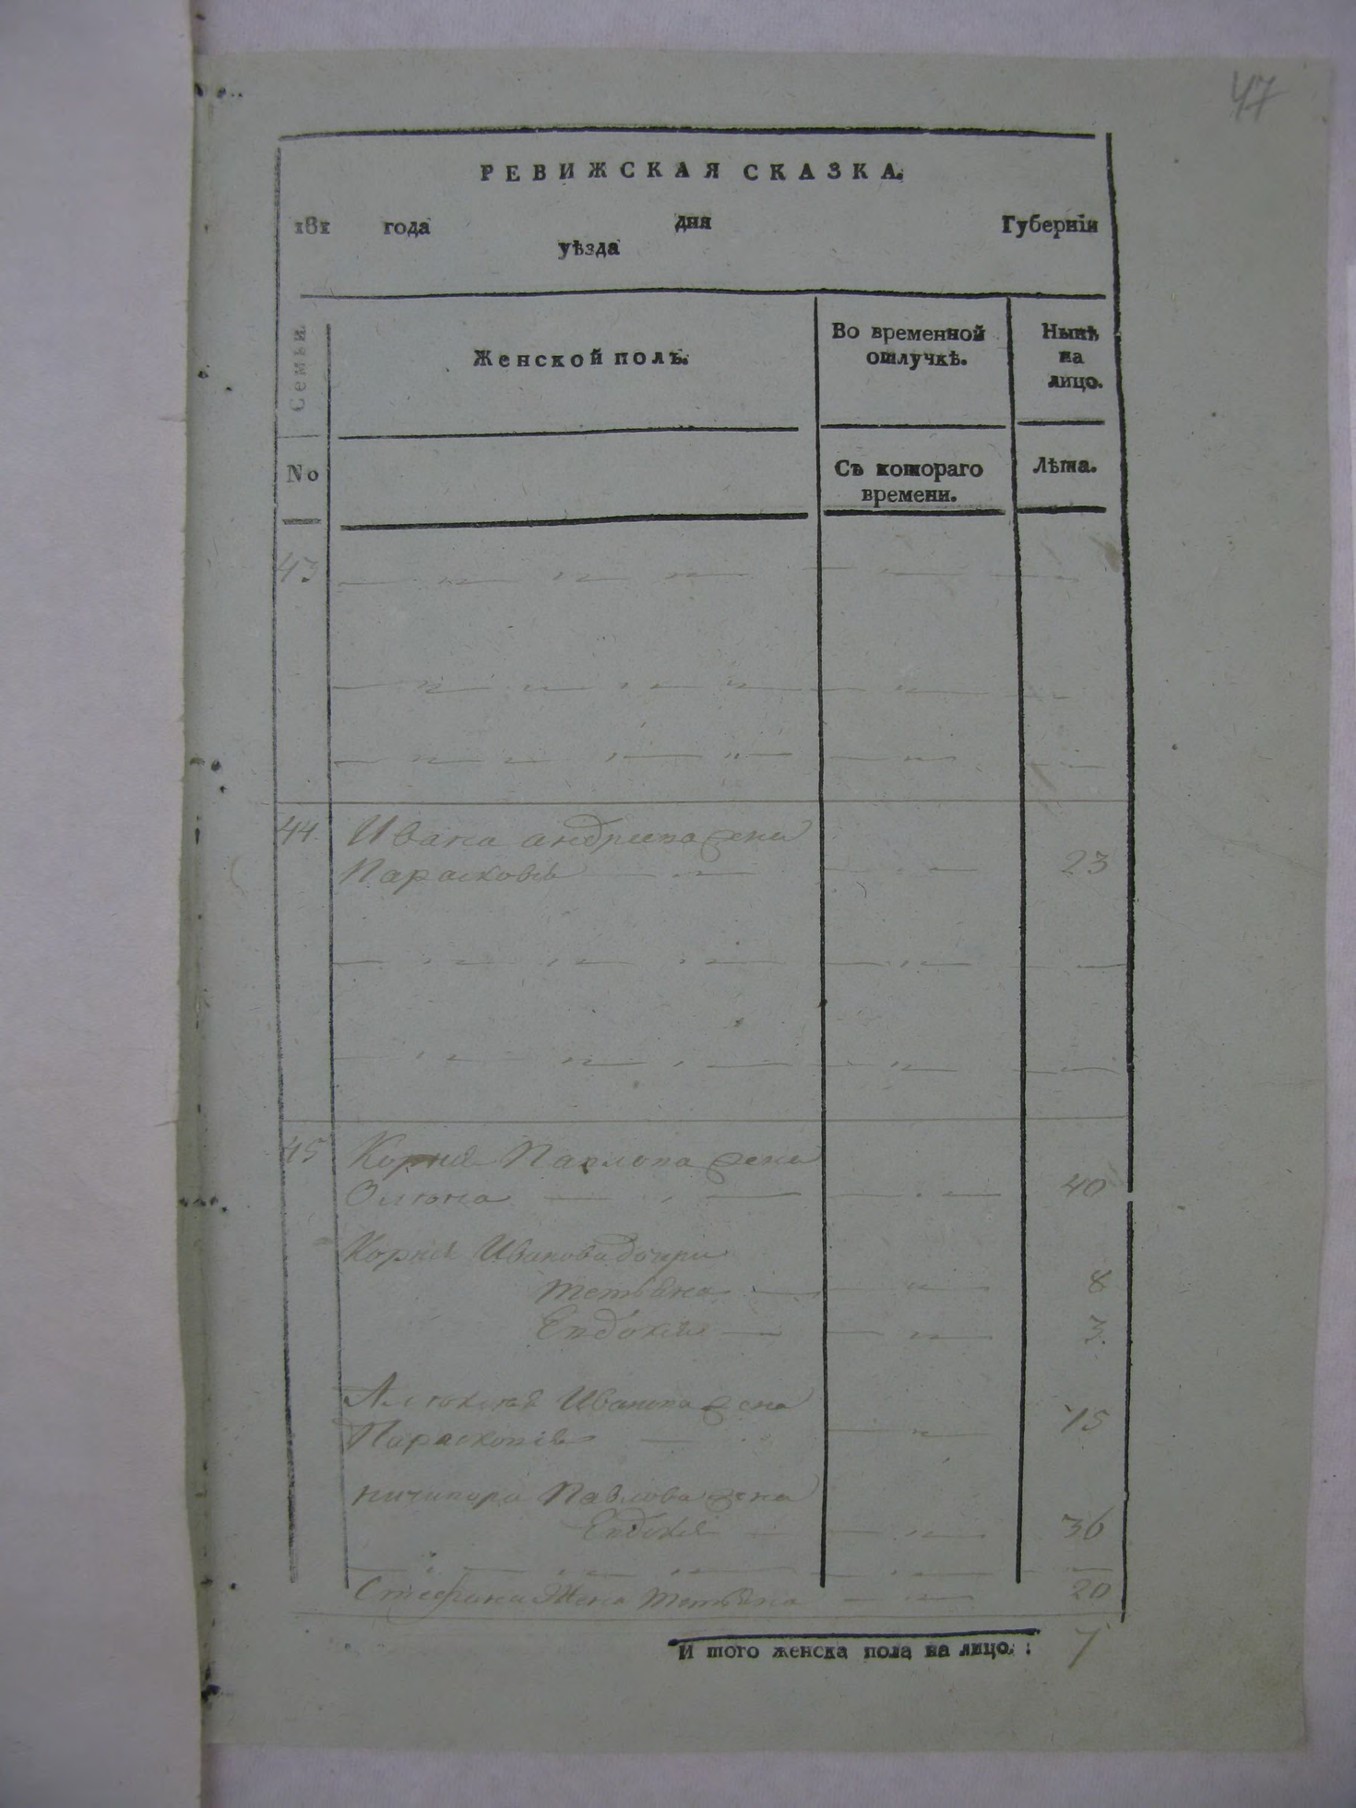 47
РЕВИЖСКАЯ СКАЗКА.
года дня Губерніи
уѣзда
Семьи. Женской полъ. Во временной отлучкѣ. Нынѣ на лицо.
No Съ котораго времени. Лѣта.
43
44. Ивана андриева жена
Парасковя 23
45 Корнея Павлова жена
Олюна 40
Корнея Иванова дочери
Тетьяна 8
Евдокия 3
Иванова жена
Парасковия 15
ничипора Павлова жена
Евдокия 36
Стефана Жена Тетьяна 20
И того женска пола на лицо: 7